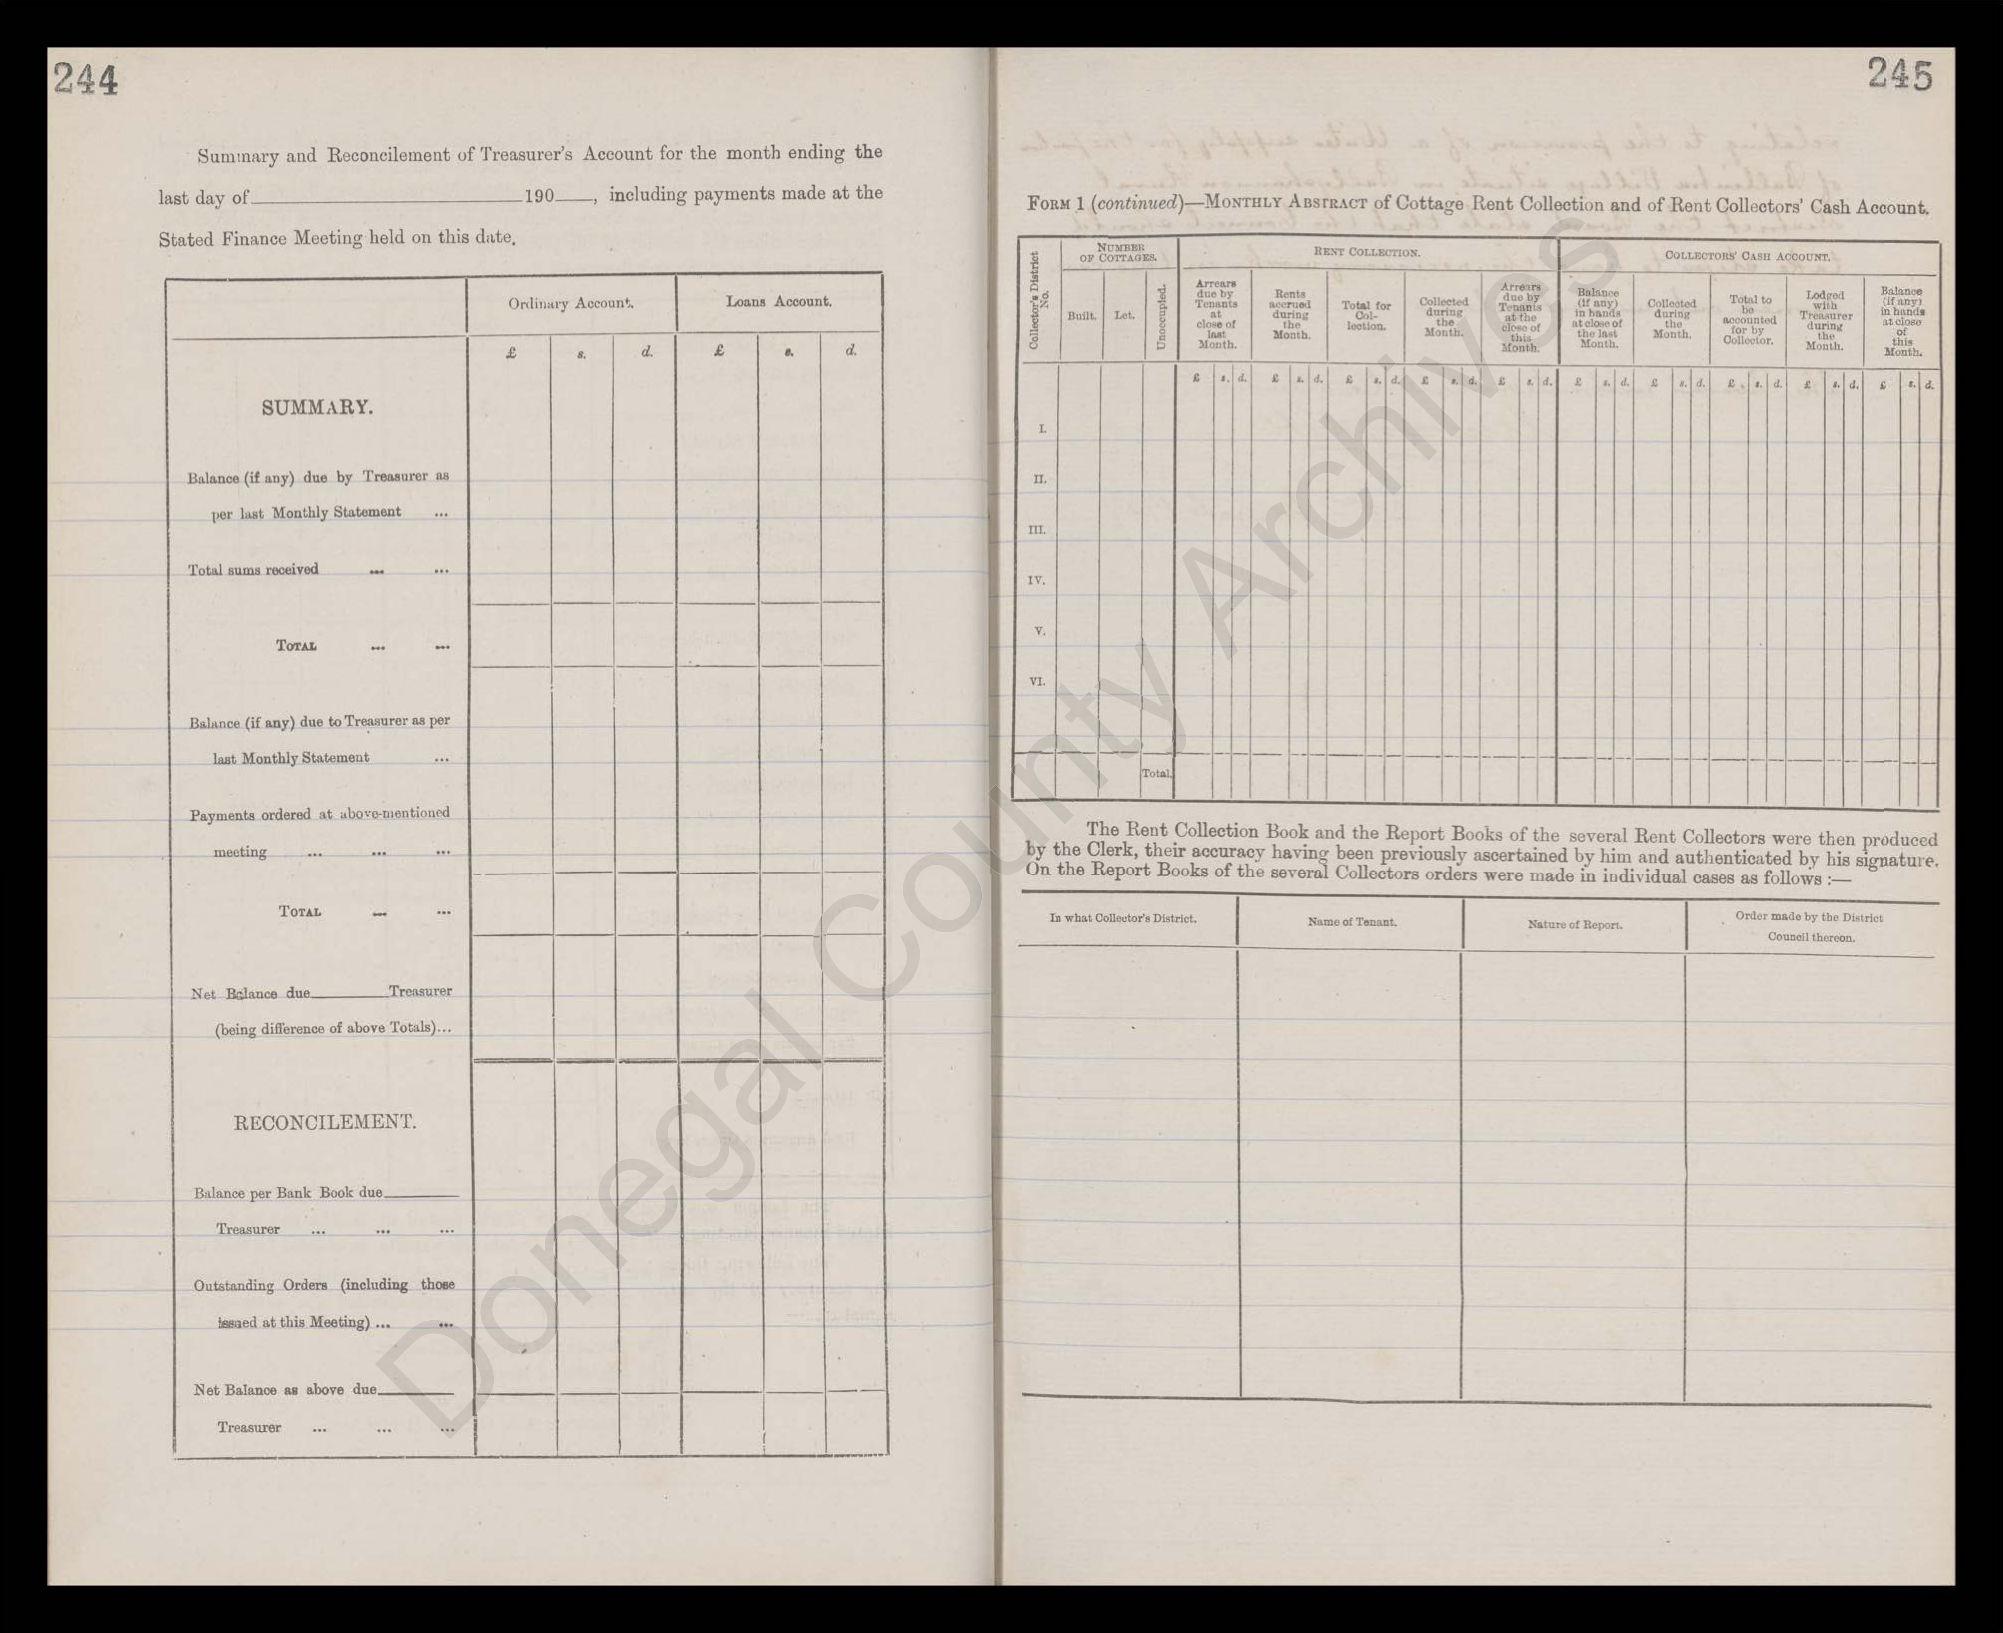 244
Summary and Reconcilement of Treasurer's Account for the month ending the
last day of 190 , including payments made at the
Stated Finance Meeting held on this date.
Ordinary Account. Loans Account.
£ s. d. £ s. d.
SUMMARY.
Balance (if any) due by Treasurer as
per last Monthly Statement ...
Total sums received ... ...
TOTAL ... ...
Balance (if any) due to Treasurer as per
last Monthly Statement ...
Payments ordered at above-mentioned
meeting ... ... ...
TOTAL ... ...
Net Balance due Treasurer
(being difference of above Totals)...
RECONCILEMENT.
Balance per Bank Book due
Treasurer ... ... ...
Outstanding Orders (including those
issued at this Meeting) ... ...
Net Balance as above due
Treasurer ... ... ...
245
FORM 1 (continued)—MONTHLY ABSTRACT of Cottage Rent Collection and of Rent Collectors' Cash Account.
Collector's District
No.
NUMBER
OF COTTAGES.
RENT COLLECTION.
COLLECTORS' CASH ACCOUNT.
Built.
Let.
Unoccupied.
Arrears
due by
Tenants
at
close of
last
Month.
Rents
accrued
during
the
Month.
Total for
Col-
lection.
Collected
during
the
Month.
Arrears
due by
Tenants
at the
close of
this
Month.
Balance
(if any)
in hands
at close of
the last
Month.
Collected
during
the
Month.
Total to
be
accounted
for by
Collector.
Lodged
with
Treasurer
during
the
Month.
Balance
(if any)
in hands
at close
of
this
Month.
£ s. d. £ s. d. £ s. d. £ s. d. £ s. d. £ s. d. £ s. d. £ s. d. £ s. d. £ s. d.
I.
II.
III.
IV.
V.
VI.
Total.
The Rent Collection Book and the Report Books of the several Rent Collectors were then produced
by the Clerk, their accuracy having been previously ascertained by him and authenticated by his signature.
On the Report Books of the several Collectors orders were made in individual cases as follows :—
In what Collector's District.
Name of Tenant.
Nature of Report.
Order made by the District
Council thereon.
Donegal County Archives